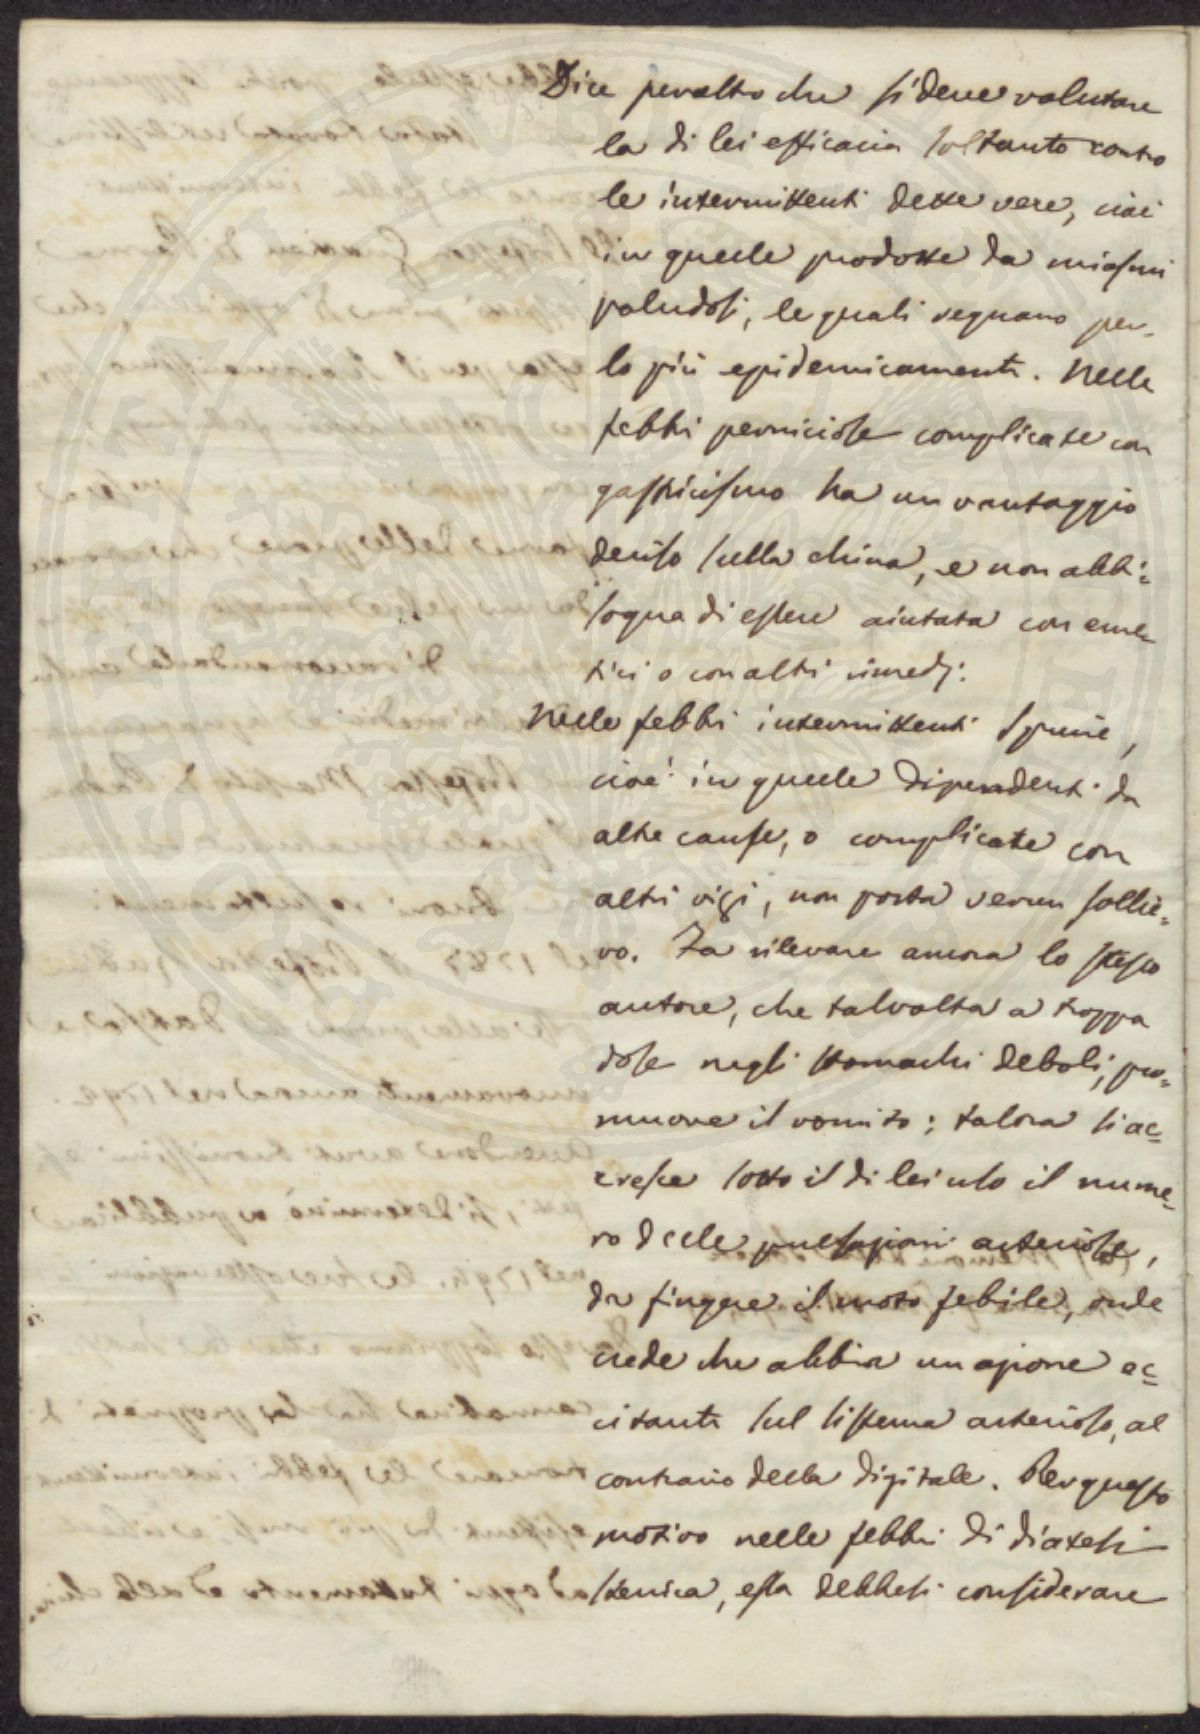 Dice peraltro che si deve valutare
la di lei efficacia soltanto contro
le intermittenti dette vere, cioè
in quelle prodotte da miasmi
paludosi, le quali regnano per-
lo più epidemicamente. Nelle
febbri perniciose complicate con
gastricismo ha un vantaggio
deciso sulla china, e non abbi=
sogna di essere aiutata con eme-
tici o con altri rimedj.
Nelle febbri intermittenti spurie,
cioè in quelle dipendenti da
altre cause, o complicate con
altri vizi, non porta verun sollie=
vo. Fa rilevare ancora lo stesso
autore, che talvolta a troppa
dose negli stomachi deboli, pro=
muove il vomito; talora si ac=
cresce sotto il di lei uso il nume=
ro delle pulsazioni arteriose,
da fingere il moto febile, onde
crede che abbia un azione ec=
citante sul sistema arterioso, al
contrario della digitale. Per questo
motivo nelle febbri di diatesi
stenica, essa debbesi considerare